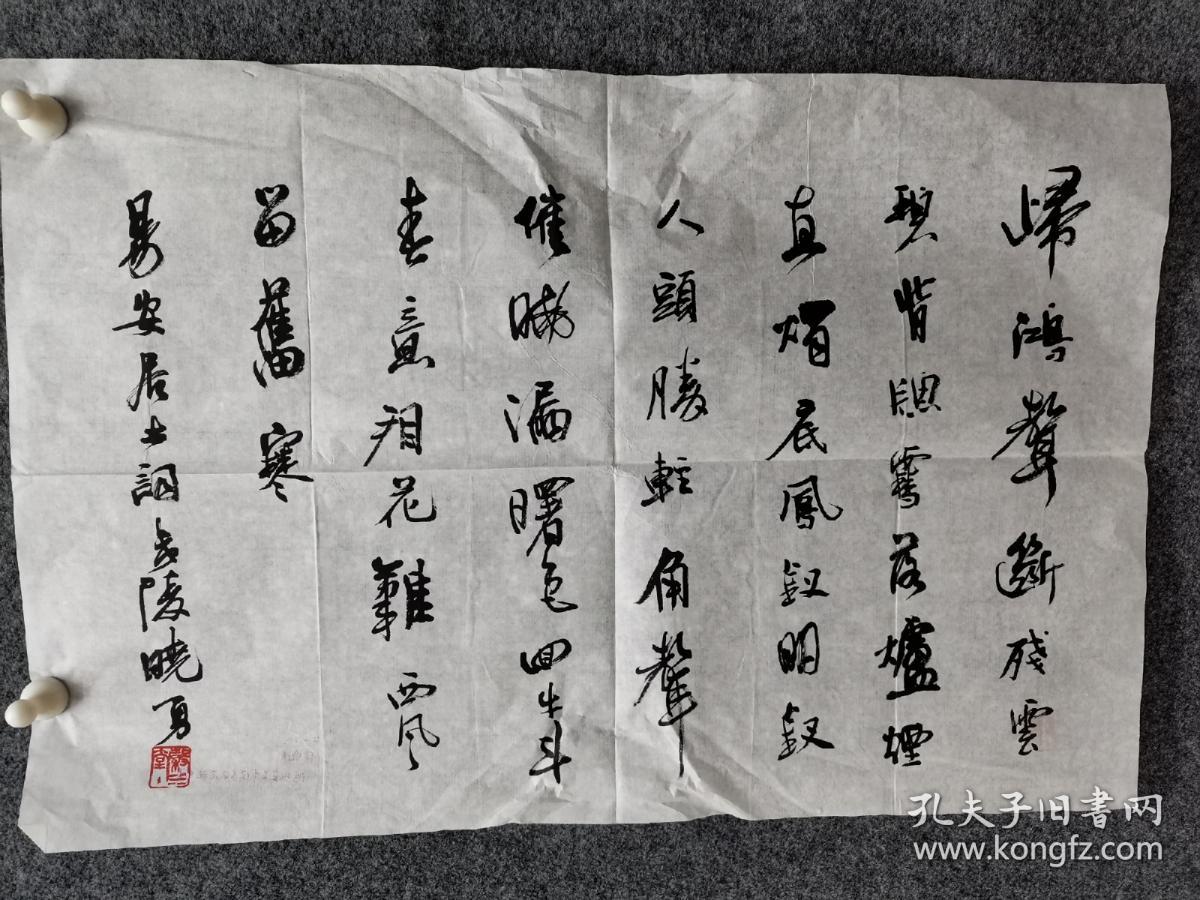 歸鴻聲斷殘雲
碧背牕雪落爐煙
直燭底鳳釵明釵
人頭勝輕角聲
催曉漏曙色囬牛斗
春意看花難西風
留舊寒
易安居士詞陵曉
孔夫子旧书网
www.kongfz.com